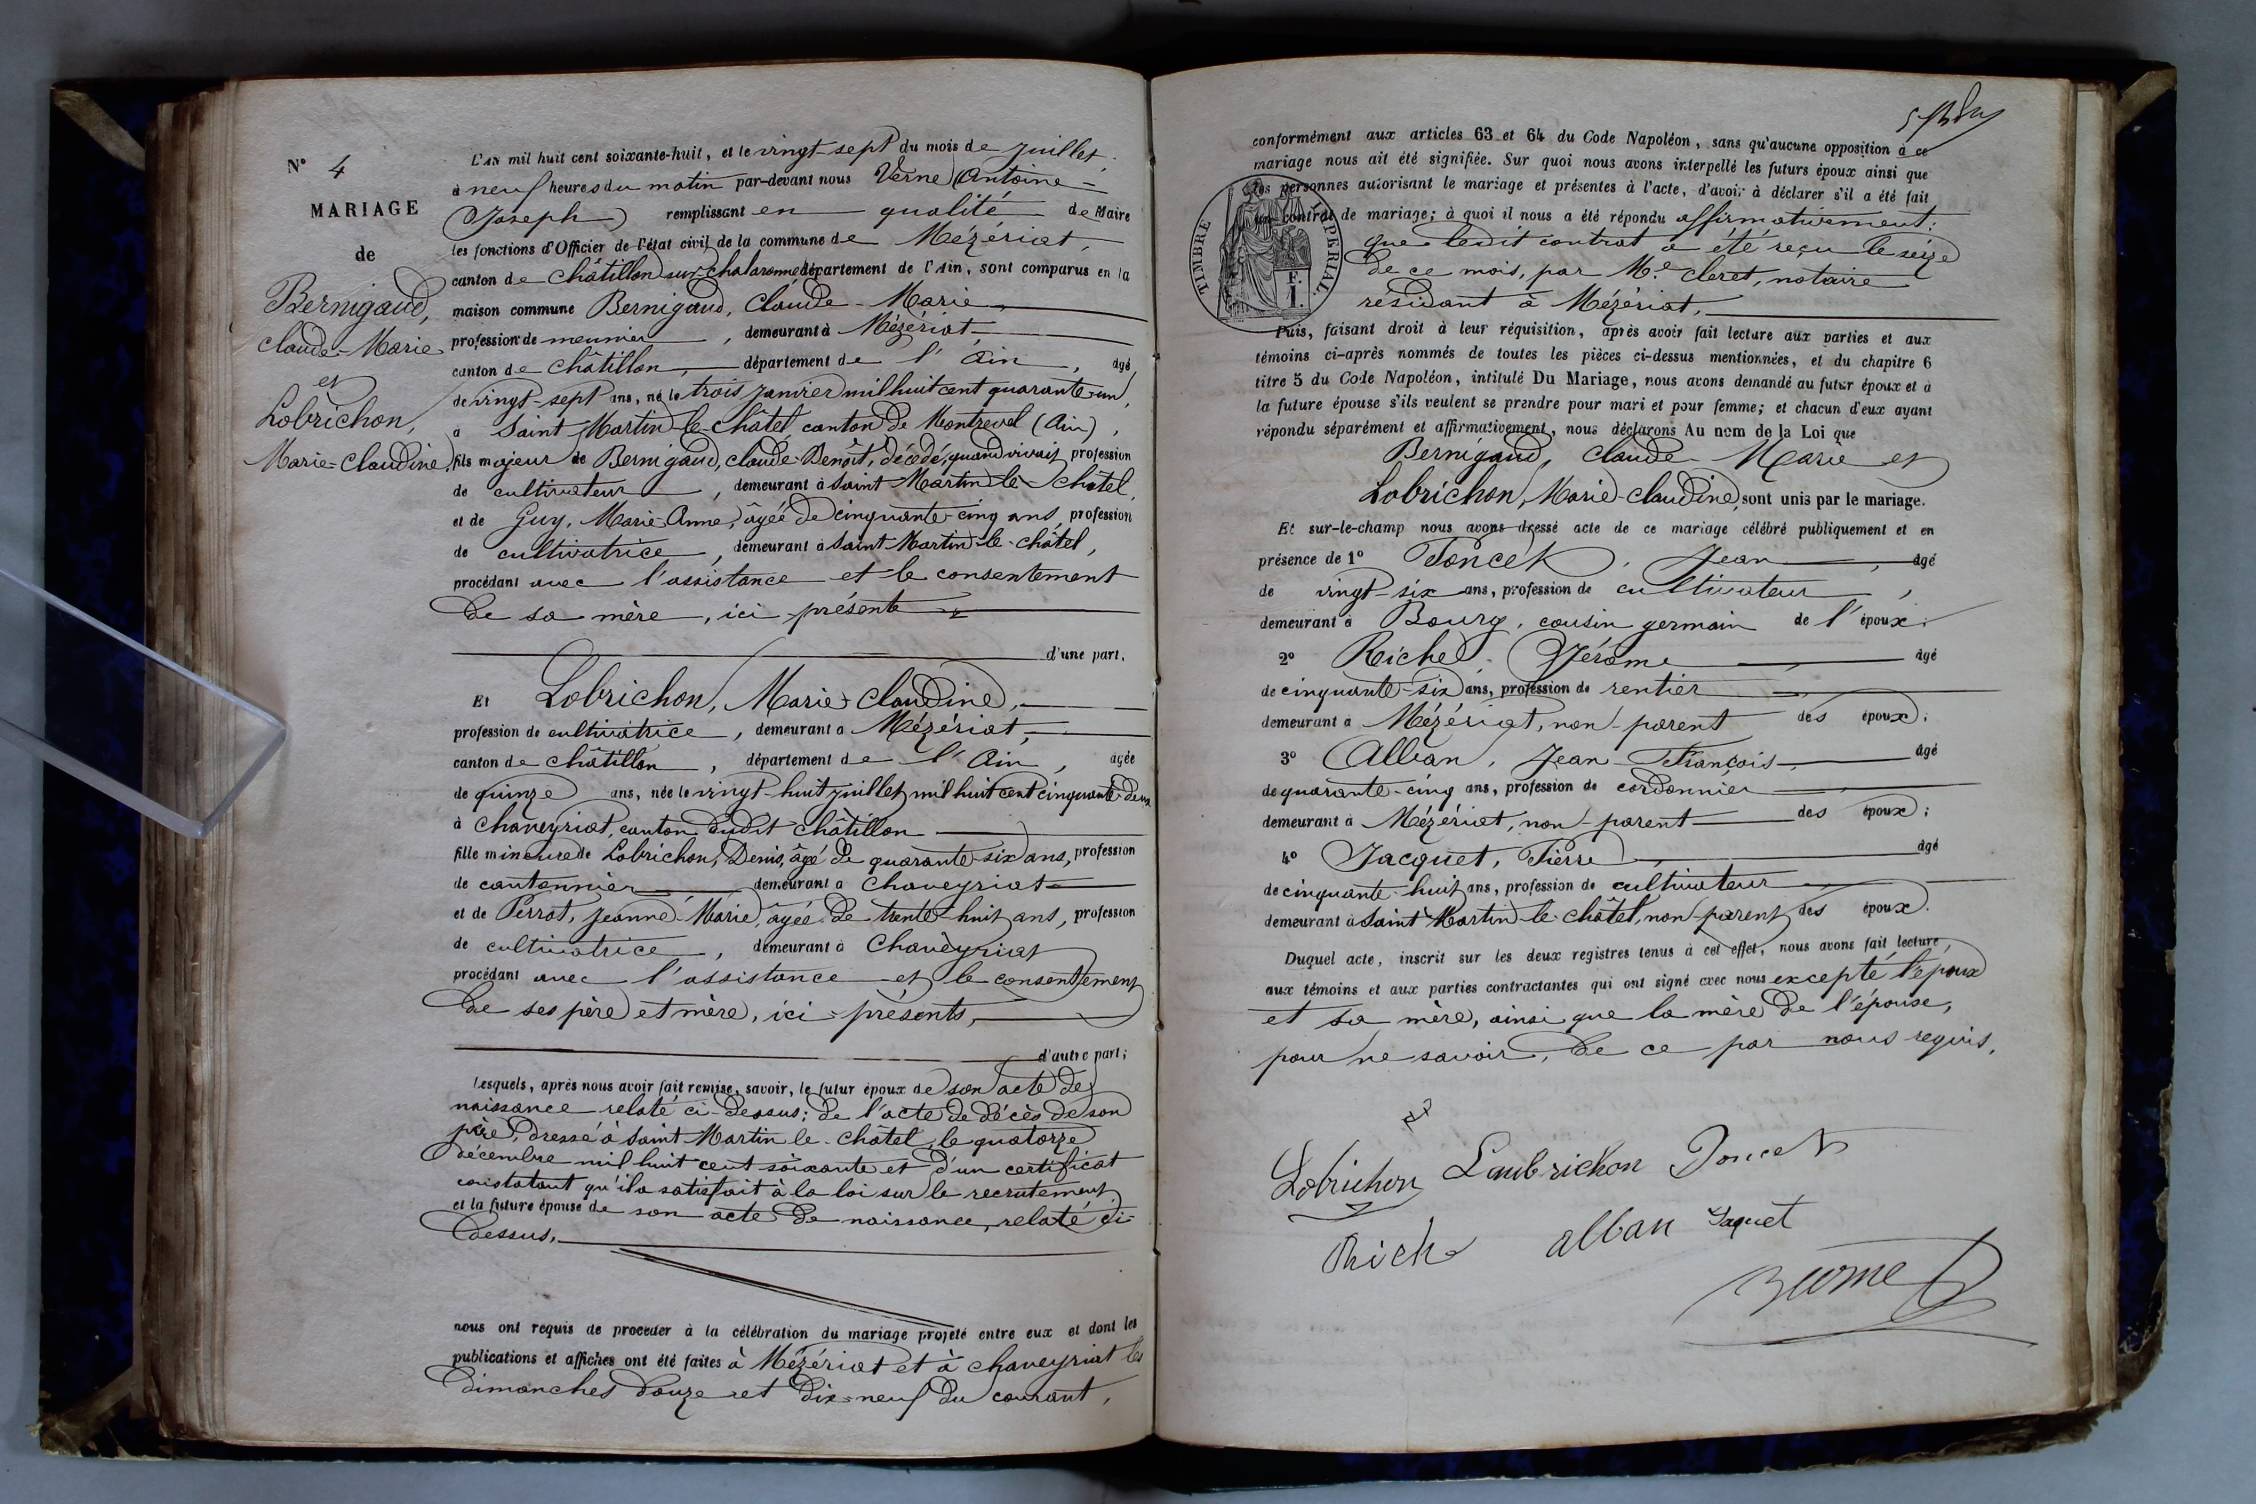 N° 4
MARIAGE
de
Bernigaud,
Claude-Marie
et
Lobrichon,
Marie-Claudine,
L'AN mil huit cent soixante-huit, et le vingt-sept du mois de juillet,
à neuf heures du matin par-devant nous Verne (Antoine-
Joseph) remplissant en qualité de Maire
les fonctions d'Officier de l'état civil de la commune de Mézériat,
canton de Châtillon sur Chalaronne département de l'Ain, sont comparus en la
maison commune Bernigaud, Claude-Marie,
profession de meunier, demeurant à Mézériat,
canton de Châtillon, département de l'Ain, âgé
de vingt-sept ans, né le trois janvier mil huit cent quarante-un,
à Saint-Martin-le-Châtel canton de Montrevel (Ain),
fils majeur de Bernigaud, Claude-Benoît, décédé, quand vivait profession
de cultivateur, demeurant à Saint-Martin-le-Châtel,
et de Guy, Marie-Anne, âgée de cinquante-cinq ans, profession
de cultivatrice, demeurant à Saint-Martin-le-Châtel,
procédant avec l'assistance et le consentement
de sa mère, ici-présente
d'une part.
Et Lobrichon, Marie-Claudine,
profession de cultivatrice, demeurant à Mézériat,
canton de Châtillon, département de l'Ain, agée
de quinze ans, née le vingt-huit juillet mil huit cent cinquante-deux
à Chaveyriat, canton dudit Châtillon
fille mineure de Lobrichon, Denis, âgé de quarante-six ans, profession
de cantonnier demeurant à Chaveyriat
et de Perrat, Jeanne-Marie, âgée de trente-huit ans, profession
de cultivatrice, demeurant à Chavèyriat
procédant avec l'assistance et le consentement
de ses père et mère, ici-présents,
d'autre part;
Lesquels, après nous avoir fait remise, savoir, le futur époux de son acte de
naissance relaté ci-dessus; de l'acte de décès de son
père, dressé à Saint-Martin-le-Châtel, le quatorze
décembre mil huit cent soixante et d'un certificat
constatant qu'il a satisfait à la loi sur le recrutement,
et la future épouse de son acte de naissance, relaté ci-
dessus,
nous ont requis de procéder à la célébration du mariage projeté entre eux et dont les
publications et affiches ont été faites à Mézériat et à Chaveyriat les
dimanches douze et dix-neuf du courant,
conformément aux articles 63 et 64 du Code Napoléon, sans qu'aucune opposition à ce
mariage nous ait été signifiée. Sur quoi nous avons interpellé les futurs époux ainsi que
les personnes autorisant le mariage et présentes à l'acte, d'avoir à déclarer s'il a été fait
un contrat de mariage; à quoi il nous a été répondu affirmativement:
que ledit contrat a été reçu le seize
de ce mois, par Me Cleret, notaire
résidant à Mézériat,
TIMBRE IMPERIAL
F.
1.
Puis, faisant droit à leur réquisition, après avoir fait lecture aux parties et aux
témoins ci-après nommés de toutes les pièces ci-dessus mentionnées, et du chapitre 6
titre 5 du Code Napoléon, intitulé Du Mariage, nous avons demandé au futur époux et à
la future épouse s'ils veulent se prendre pour mari et pour femme; et chacun d'eux ayant
répondu séparément et affirmativement, nous déclarons Au nom de la Loi que
Bernigaud, Claude-Marie et
Lobrichon, Marie-Claudine, sont unis par le mariage.
Et sur-le-champ nous avons dressé acte de ce mariage célébré publiquement et en
présence de 1° Poncet, Jean, âgé
de vingt-six ans, profession de cultivateur,
demeurant à Bourg, cousin germain de l'époux;
2° Riche, Jérôme âgé
de cinquante-six ans, profession de rentier,
demeurant à Mézériat, non-parent des époux;
3° Alban, Jean-François, âgé
de quarante-cinq ans, profession de cordonnier
demeurant à Mézériat, non-parent des époux;
4° Jacquet, Pierre, âgé
de cinquante-huit ans, profession de cultivateur
demeurant à Saint-Martin-le-Châtel, non-parent des époux.
Duquel acte, inscrit sur les deux registres tenus à cet effet, nous avons fait lecture,
aux témoins et aux parties contractantes qui ont signé avec nous excepté l'époux
et sa mère, ainsi que la mère de l'épouse,
pour ne savoir, de ce par nous requis.
Lobrichon Laubrichon Poncet
Riche alban Jaquet
Verne